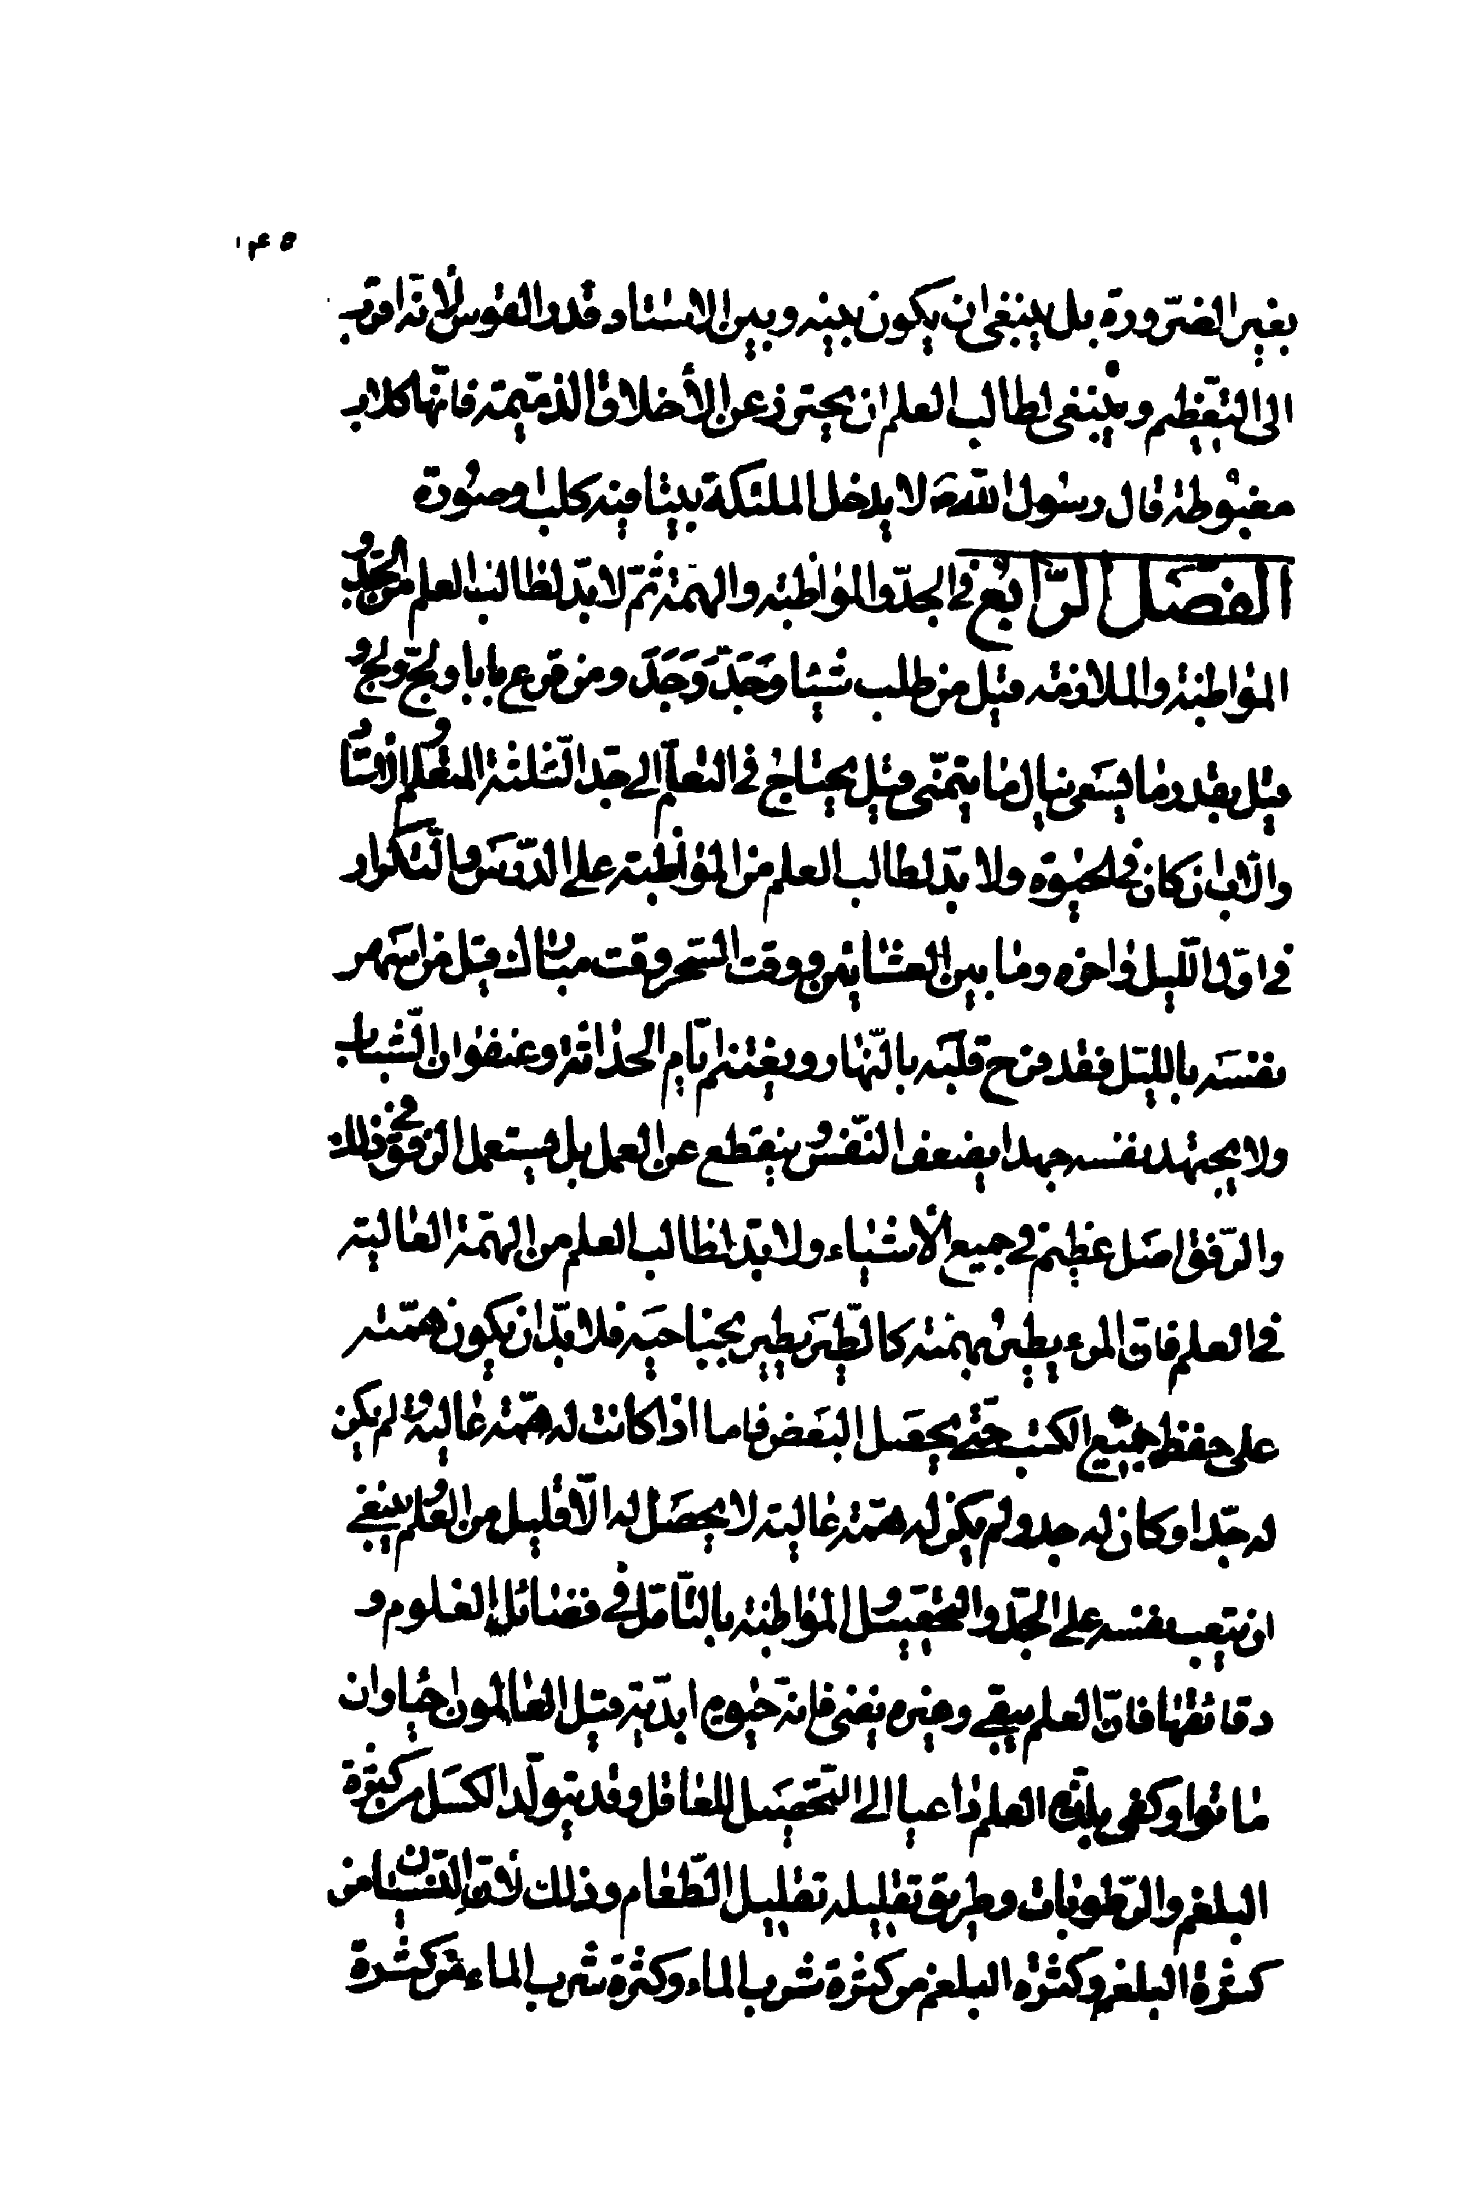 ١٤٥
بغير الضّرورة بل ينبغى ان يكون بينه و بين الاستاد قدر القوس لأنّه اقرب
الى التعظيم و ينبغى لطالب العلم ان يحترز عن الأخلاق الذميمة فانّها كلاب
معنوية قال رسول اللّه لا يدخل الملئكة بيتا فيه كلب او صورة
الفصل الرّابع في الجدّ و المواظبة و الهمّة ثمّ لا بدّ لطالب العلم من الجدّ و
المواظبة و الملازمة قيل من طلب شيئا وَجَدّ وَجَدَ و من قرع بابا و لجّ ولج و
قيل بقدر ما يسعى ينال ما يتمنّى قيل يحتاج في التعلّم الى جد الثلثة المتعلّم و الاستاد
و الاب ان كان في الحيوة و لا بدّ لطالب العلم من المواظبة على الدّرس و التكرار
في اوّل اللّيل و اخره و ما بين العشائين و وقت السّحر وقت مبارك قيل من اسهر
نفسه بالليل فقد فرح قلبه بالنّهار و يغتنم ايّام الحداثة و عنفوان الشّباب
و لا يجتهد نفسه جهدا يضعف النّفس و ينقطع عن العمل بل يستعمل الرّفق في ذلك
و الرّفق اصل عظيم في جميع الأشياء و لا بدّ لطالب العلم من الهمّة العالية
في العلم فانّ المرء يطير بهمّته كالطّير يطير بجناحيه فلا بدّ ان يكون همّته
على حفظ جميع الكتب حتّى يحصل البعض فاما اذا كانت له همّة عالية و لم يكن
له جدّ او كان له جد و لم يكن له همّة عالية لا يحصل له الّا قليل من العلم و ينبغي
ان يتعب نفسه على الجدّ و التحصيل و المواظبة بالتأمّل في فضائل العلوم و
دقائقها فانّ العلم يبقي و غيره يفنى فانه حيوة ابديّة قيل العالمون احياء و ان
ماتوا و كفى بلذّة العلم داعيا الى التّحصيل للعاقل و قد يتولّد الكسل من كثرة
البلغم و الرّطوبات و طريق تقليله تقليل الطّعام و ذلك لأنّ النسيان من
كثرة البلغم و كثرة البلغم من كثرة شرب الماء و كثرة شرب الماء من كثرة